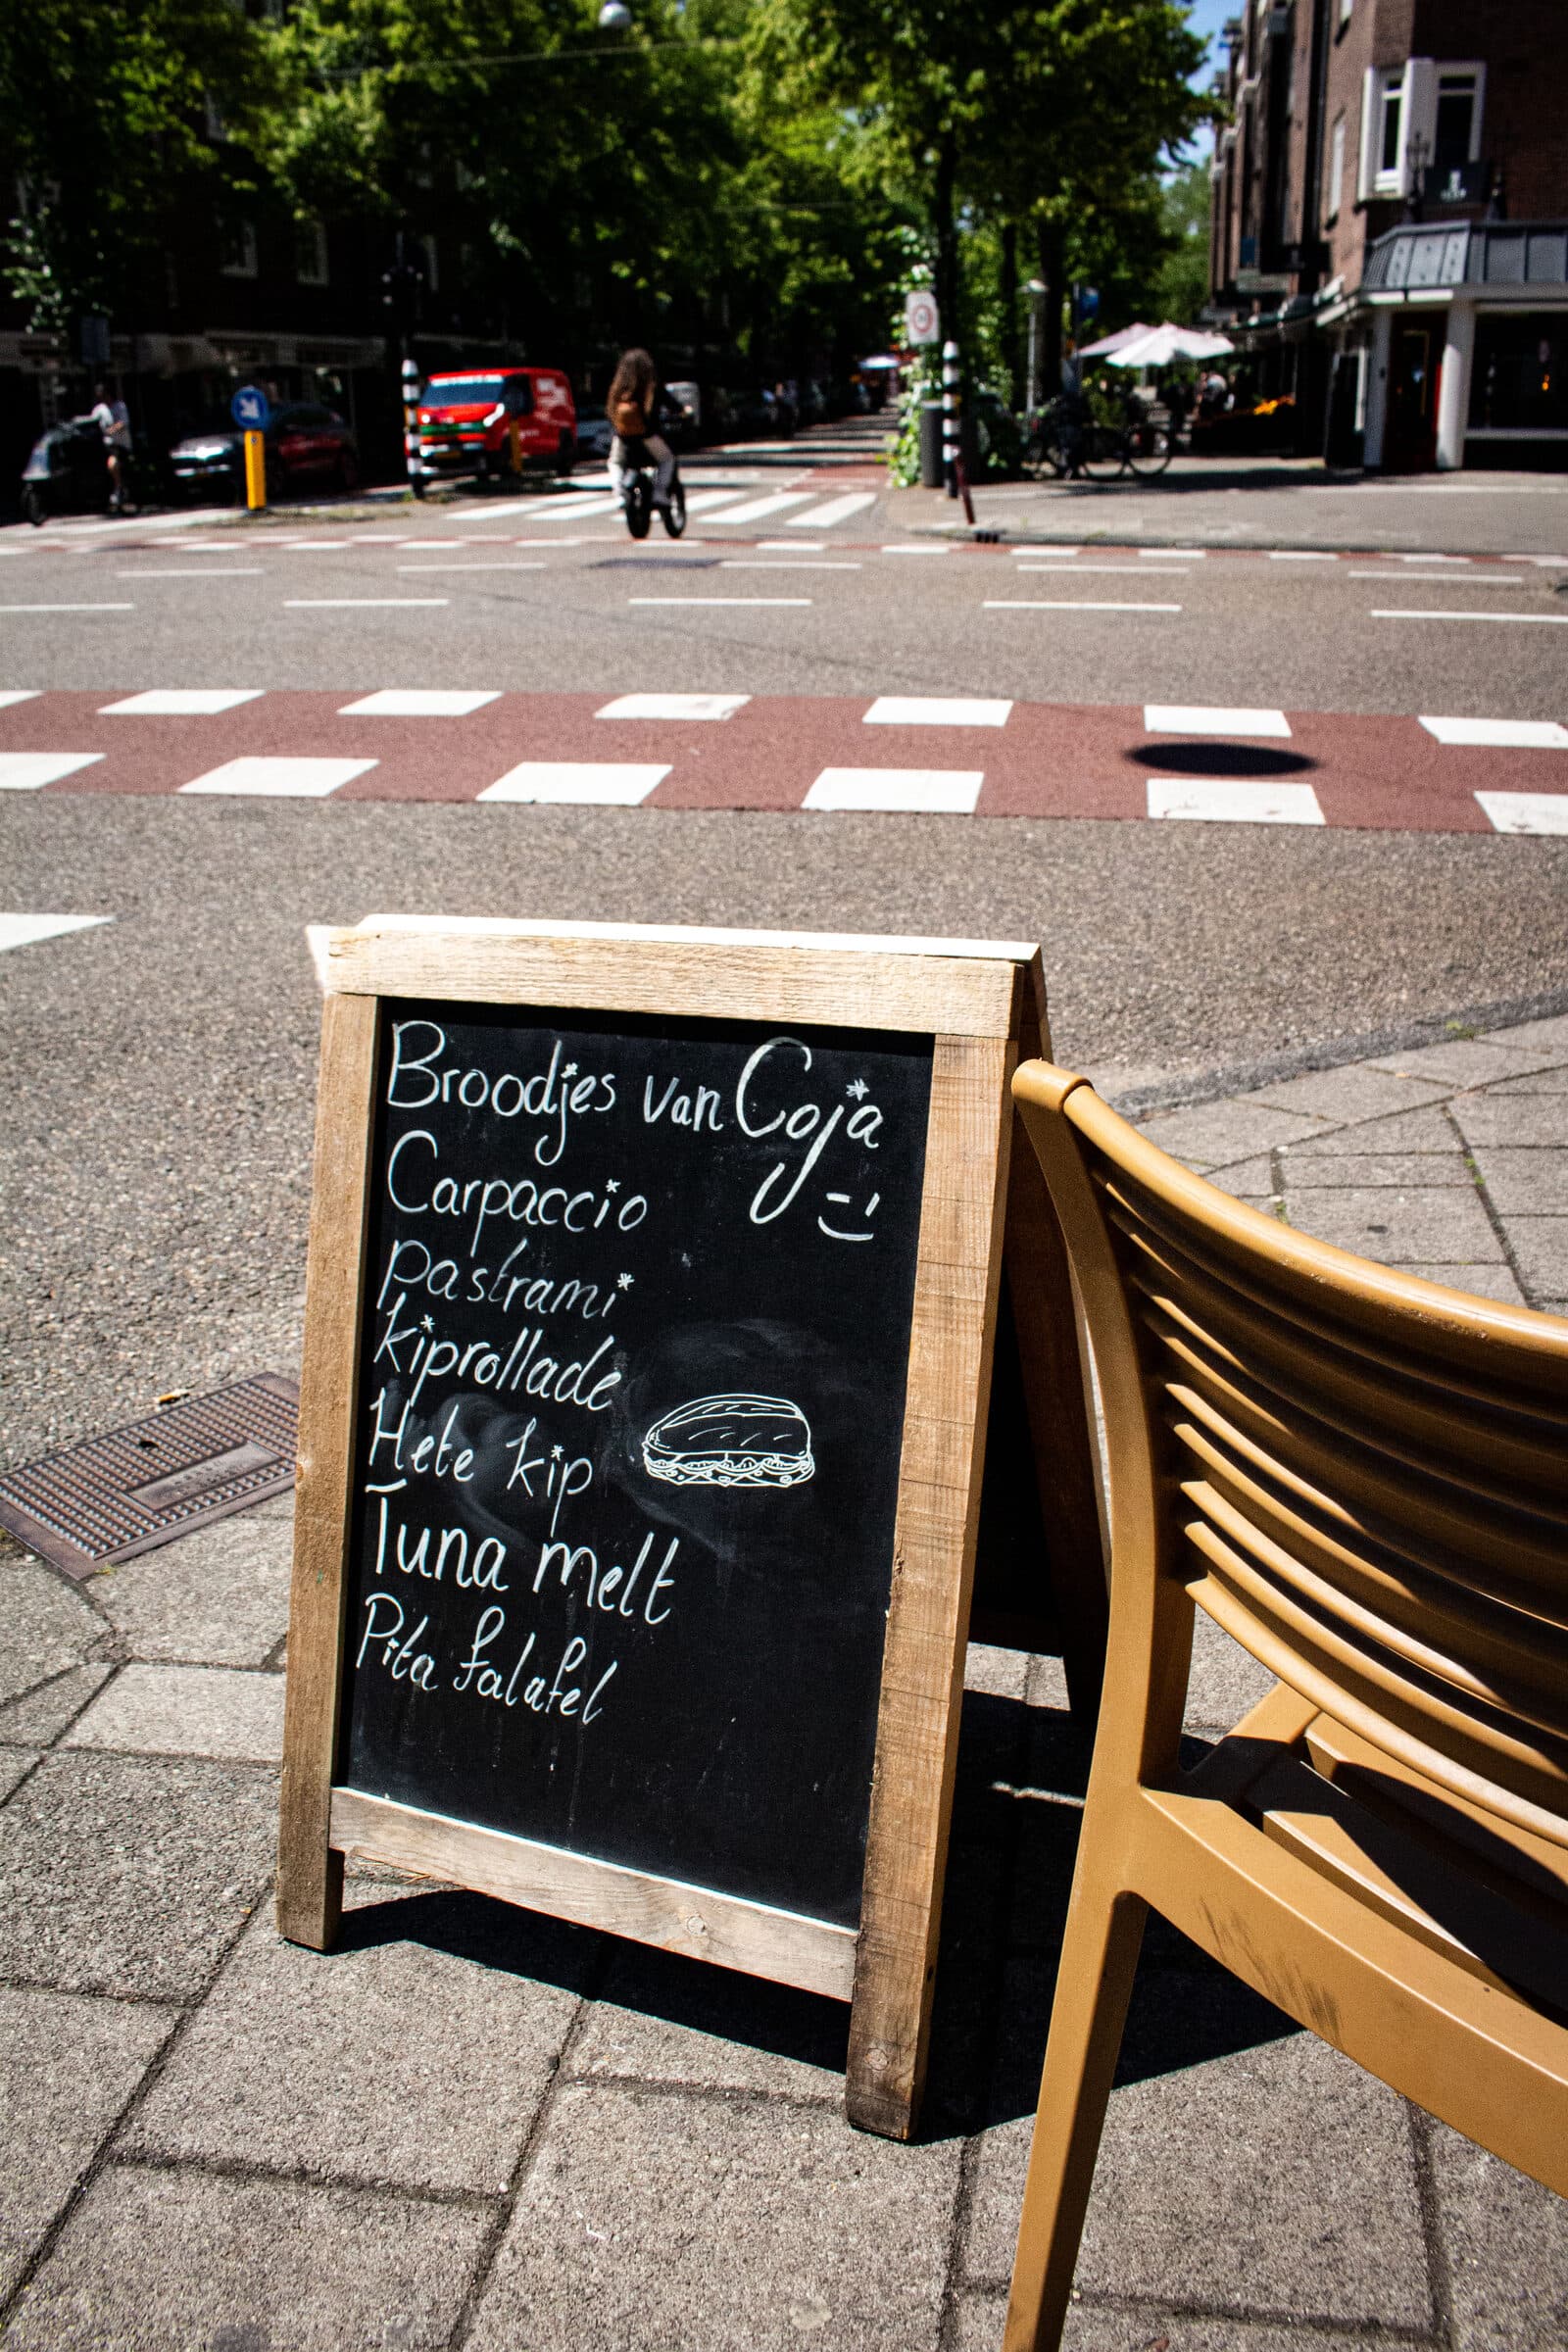 Broodjes van Coja
Carpaccio
Pastrami
kiprollade
Hete kip
Tuna melt
Pita falafel